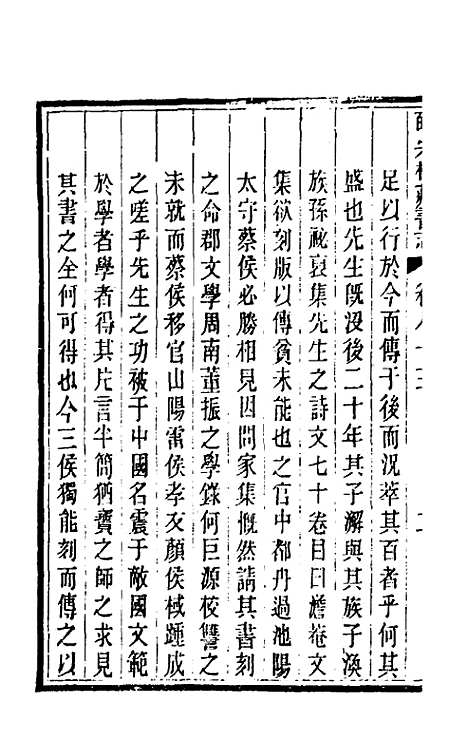 足以行於今而傳于後而況萃其百者乎何其
盛也先生旣沒後二十年其子澥與其族子渙
族孫祕裒集先生之詩文七十卷目曰澹菴文
集欲刻版以傳貧未能也之官中都丹過池陽
太守蔡侯必勝相見因問家集慨然請其書刻
之命郡文學周南董振之學錄何巨源校讐之
未就而蔡侯移官山陽雷侯孝友顏侯棫踵成
之嗟乎先生之功被于中國名震于敵國文範
於學者學者得其片言半簡猶寶之師之求見
其書之全何可得也今三侯獨能刻而傳之以